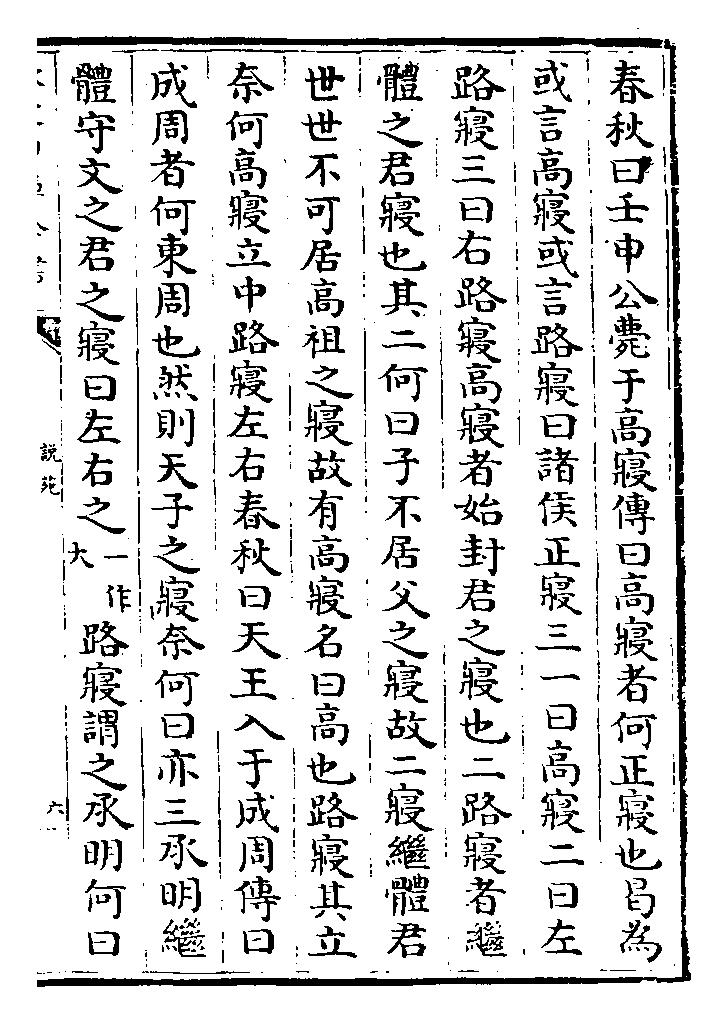 春秋曰壬申公薨于高寢傳曰高寢者何正寢也曷為
或言高寢或言路寢曰諸侯正寢三一曰高寢二曰左
路寢三曰右路寢高寢者始封君之寢也二路寢者繼
體之君寢也其二何曰子不居父之寢故二寢繼體君
世世不可居高祖之寢故有高寢名曰高也路寢其立
奈何高寢立中路寢左右春秋曰天王入于成周傳曰
成周者何東周也然則天子之寢奈何曰亦三承明繼
體守文之君之寢曰左右之一作大路寢謂之承明何曰
說苑
六